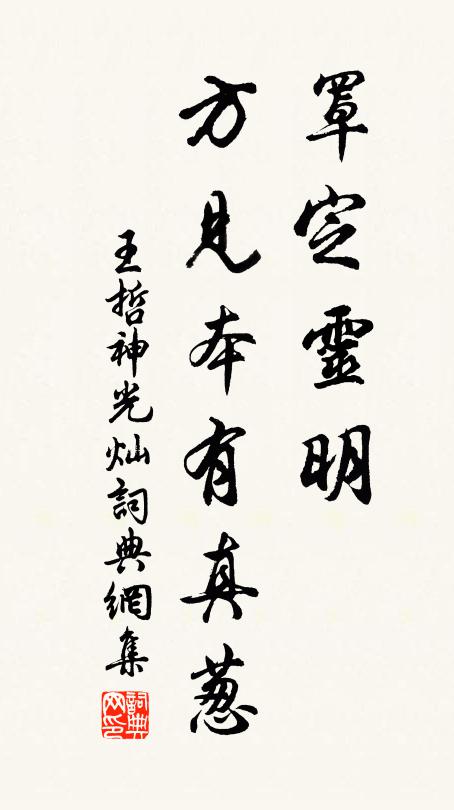 罩定靈明
方見本有真蔥
王哲神光灿詞典網集
詞典网印